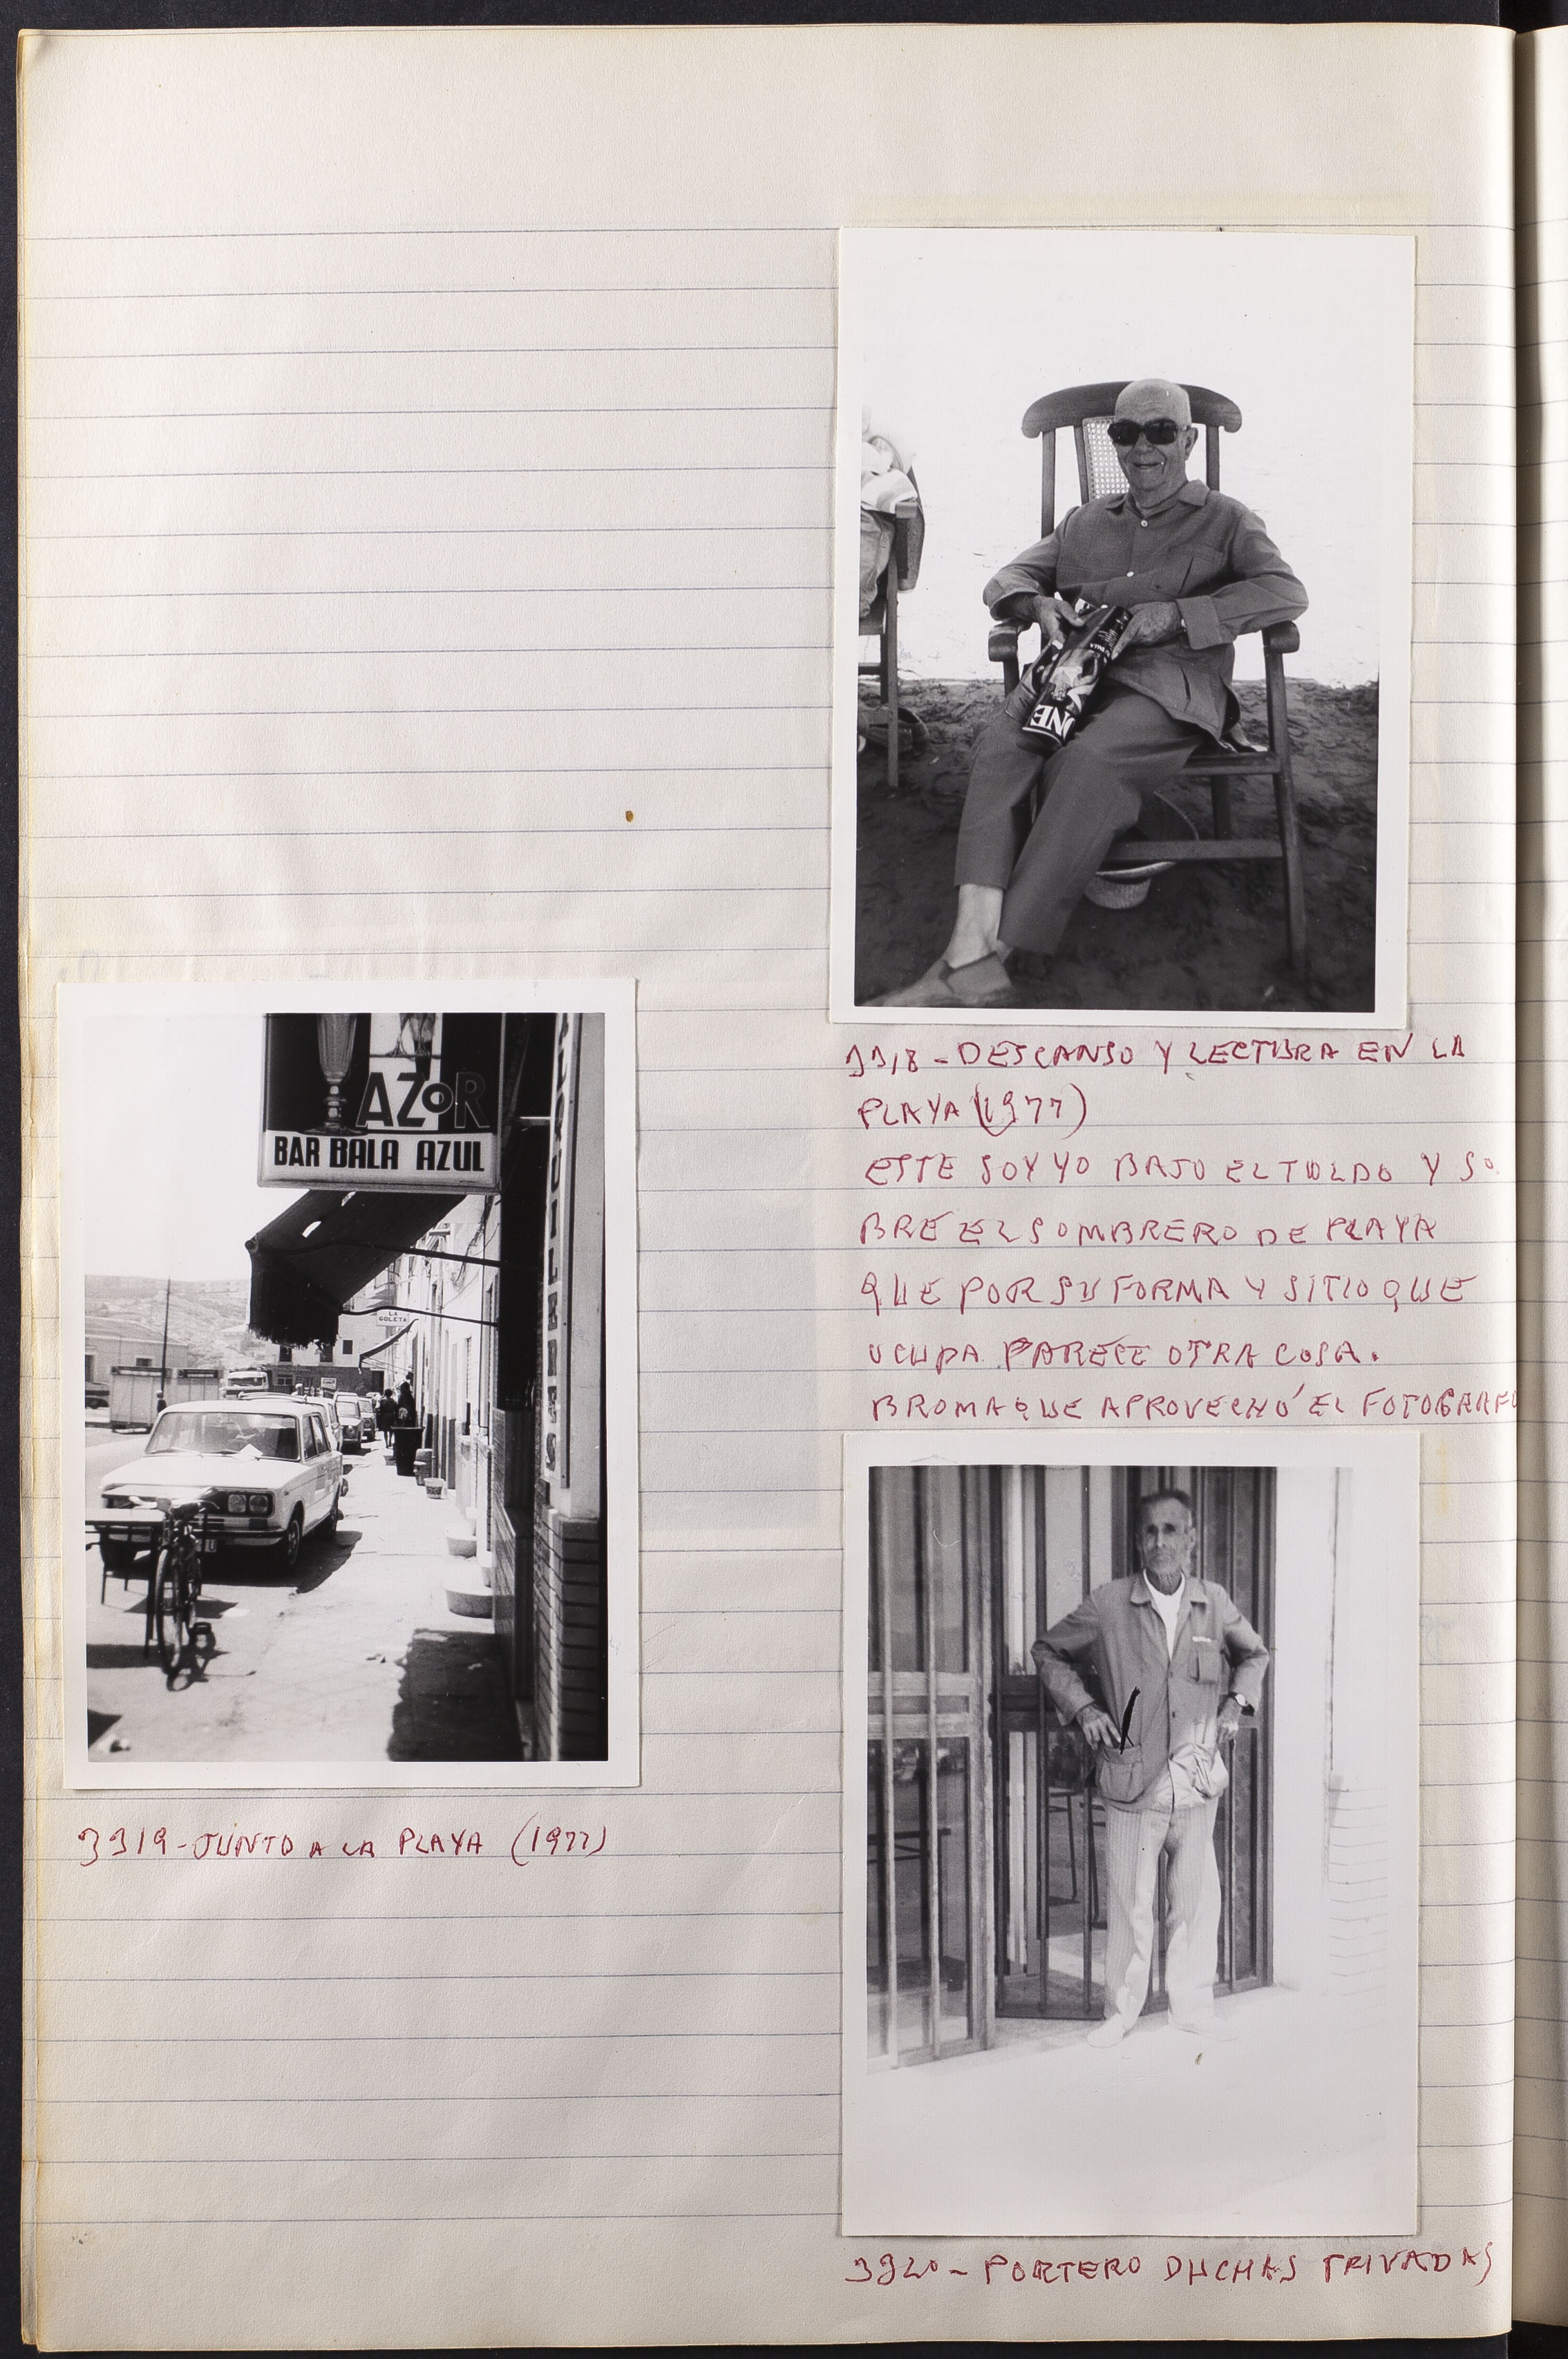 ONE
3318-DESCANSO Y LECTURA EN LA
PLAYA (1977)
ESTE SOY YO BAJO EL TOLDO Y SO
BRE EL SOMBRERO DE PLAYA
QUE POR SU FORMA Y SITIO QUE
OCUPA PARECE OTRA COSA.
BROMA QUE APROVECHÓ EL FOTOGRAFO
AZOR
BAR BALA AZUL
LA
GOLETA
3319-JUNTO A LA PLAYA (1977)
3320- PORTERO DUCHAS PRIVADAS